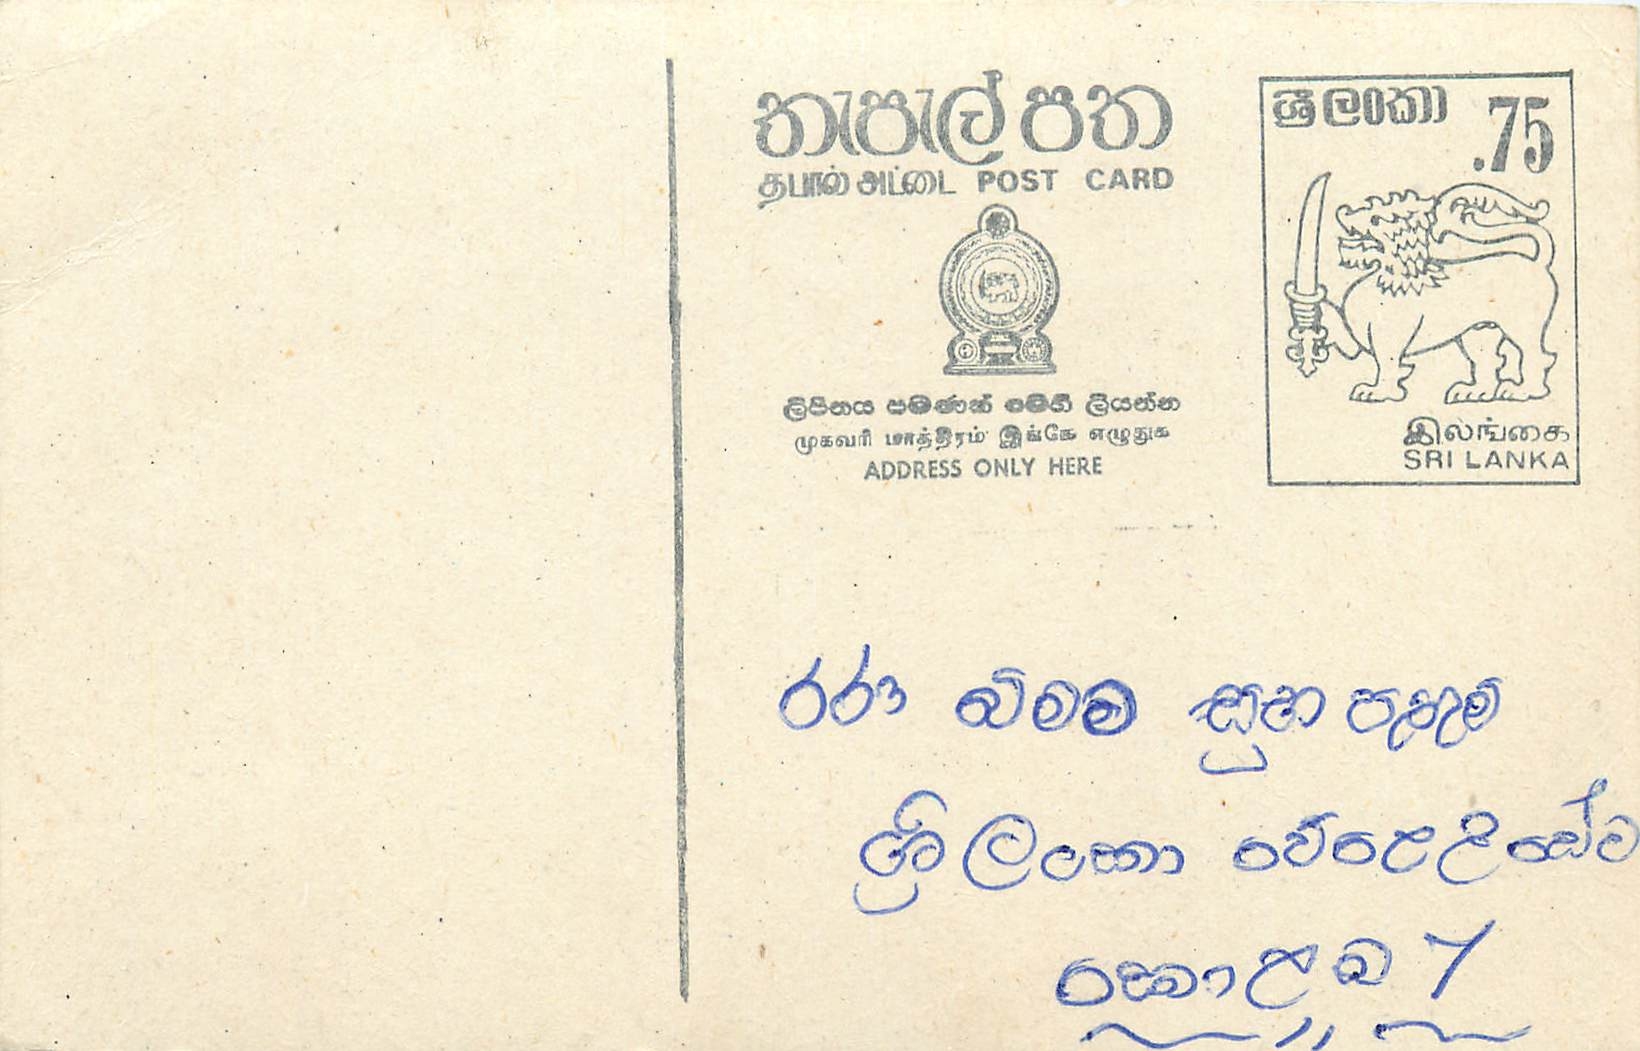 තැපැල් පත
தபால் அட்டை POST CARD
ශ්‍රී ලංකා .75
ලිපිනය පමණක් මෙහි ලියන්න
முகவரி மாத்திரம் இங்கே எழுதுக
ADDRESS ONLY HERE
இலங்கை
SRI LANKA
රරා බිමම සුභ පැතුම්
ශ්‍රී ලංකා වෙළෙඳ සේව
කොළඹ 7